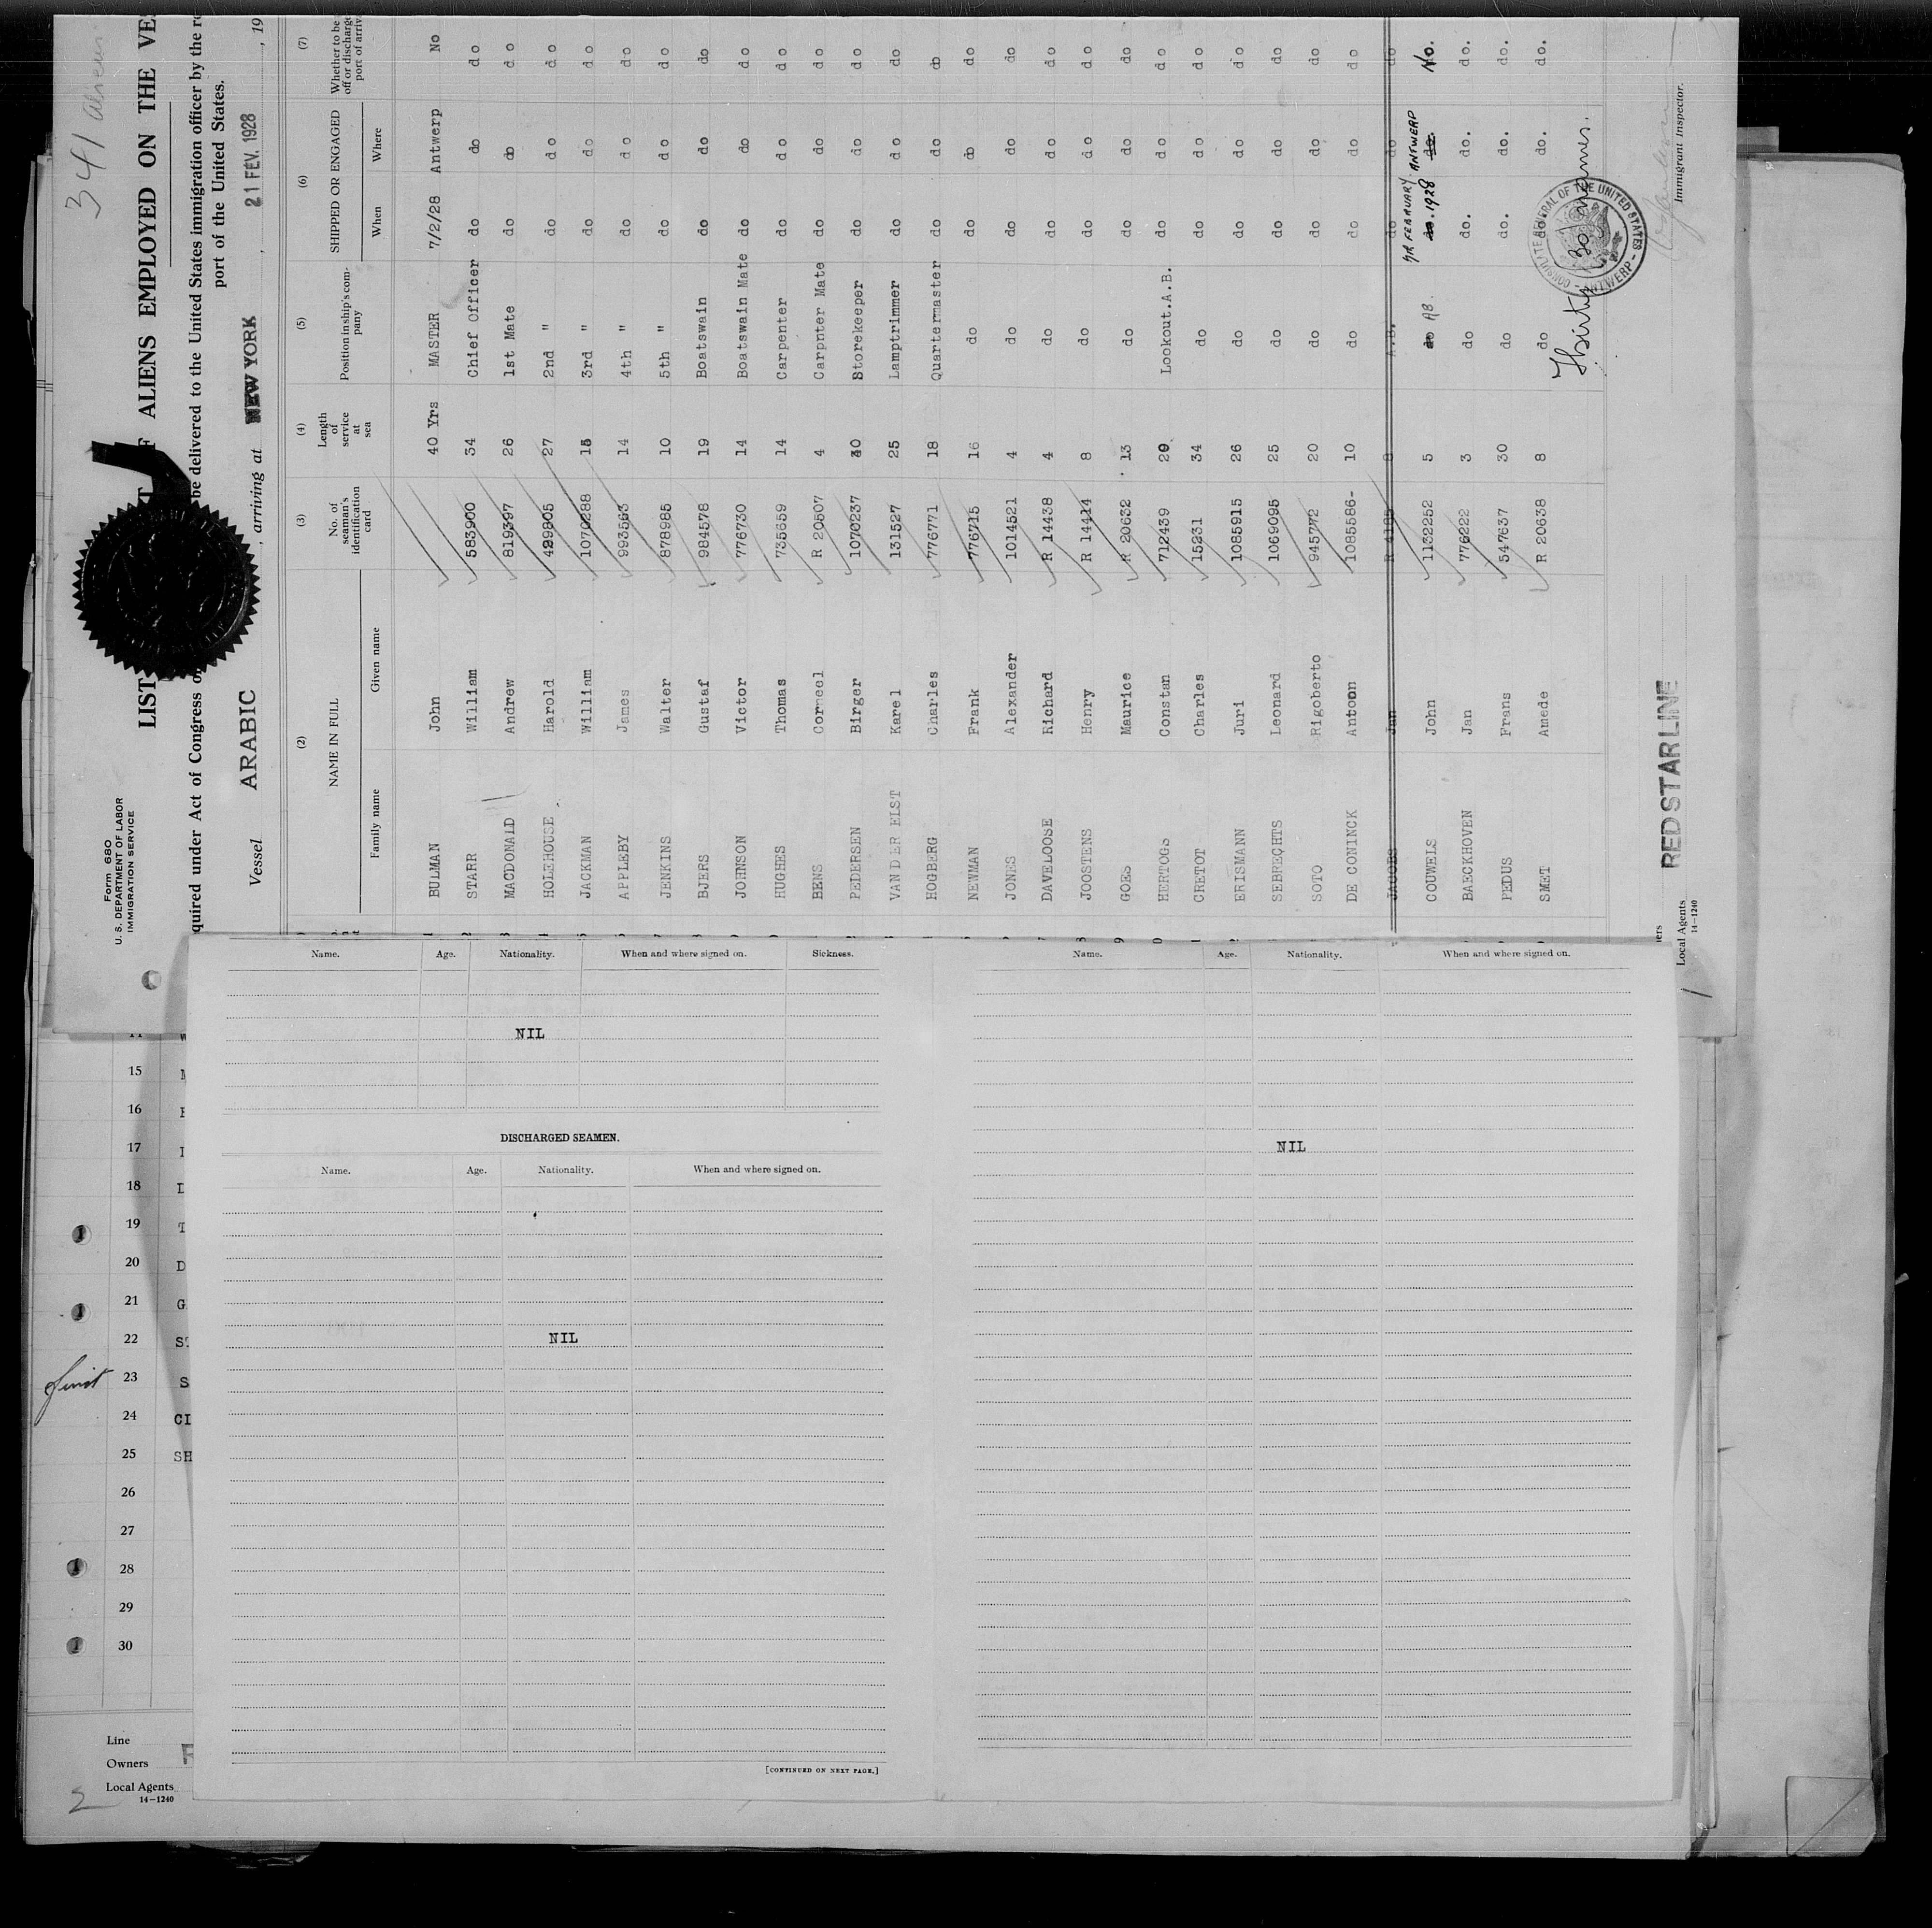 341 aliens
Form 680
U. S. DEPARTMENT OF LABOR
IMMIGRATION SERVICE
LIST ALIENS EMPLOYED ON THE VE
quired under Act of Congress be delivered to the United States immigration officer by the r
port of the United States.
Vessel ARABIC , arriving at NEW YORK , 21 FEV. 1928 , 19
(2) (3) (4) (5) (6) (7)
NAME IN FULL No. of seaman's identification card Length of service at sea Position in ship's company SHIPPED OR ENGAGED Whether to be off or discharge port of arriv
Family name Given name When Where
BULMAN John 40 Yrs MASTER 7/2/28 Antwerp No
STARR William 583900 34 Chief Officer do do do
MACDONALD Andrew 819397 26 1st Mate do do do
HOLEHOUSE Harold 429805 27 2nd " do do do
JACKMAN William 1070288 15 3rd " do do do
APPLEBY James 993563 14 4th " do do do
JENKINS Walter 878985 10 5th " do do do
BJERS Gustaf 984578 19 Boatswain do do do
JOHNSON Victor 776730 14 Boatswain Mate do do do
HUGHES Thomas 735659 14 Carpenter do do do
BENS Corneel R 20507 4 Carpnter Mate do do do
PEDERSEN Birger 1070237 40 Storekeeper do do do
VAN DER ELST Karel 131527 25 Lamptrimmer do do do
HOGBERG Charles 776771 18 Quartermaster do do do
NEWMAN Frank 776715 16 do do do do
JONES Alexander 1014521 4 do do do do
DAVELOOSE Richard R 14438 4 do do do do
JOOSTENS Henry R 14414 8 do do do do
GOES Maurice R 20632 13 do do do do
HERTOGS Constan 712439 29 Lookout.A.B. do do do
CRETOT Charles 15231 34 do do do do
ERISMANN Juri 1085915 26 do do do do
SEBRECHTS Leonard 1069095 25 do do do do
SOTO Rigoberto 945772 20 do do do do
DE CONINCK Antoon 1085586- 10 do do do do
JACOBS Jan R 4185 8 A.B. do do do
COUWELS John 1132252 5 do AB. 7TH FEBRUARY do. 1928 ANTWERP do. No.
BAECKHOVEN Jan 776222 3 do do. do. do.
PEDUS Frans 547637 30 do do. do. do.
SMET Amede R 20638 8 do do. do. do.
Thirty (30) names.
CONSULATE GENERAL OF THE UNITED STATES - ANTWERP -
Immigrant Inspector.
RED STAR LINE
ers
Local Agents
14-1240
1
Name. Age. Nationality. When and where signed on. Sickness.
NIL
DISCHARGED SEAMEN.
Name. Age. Nationality. When and where signed on.
NIL
[CONTINUED ON NEXT PAGE.]
Name. Age. Nationality. When and where signed on.
NIL
15
16
17
18 D
19 T
20 D
21 G
22 ST
23 S
24 CL
25 SH
26
27
28
29
30
Line
Owners R
Local Agents
14-1240
2